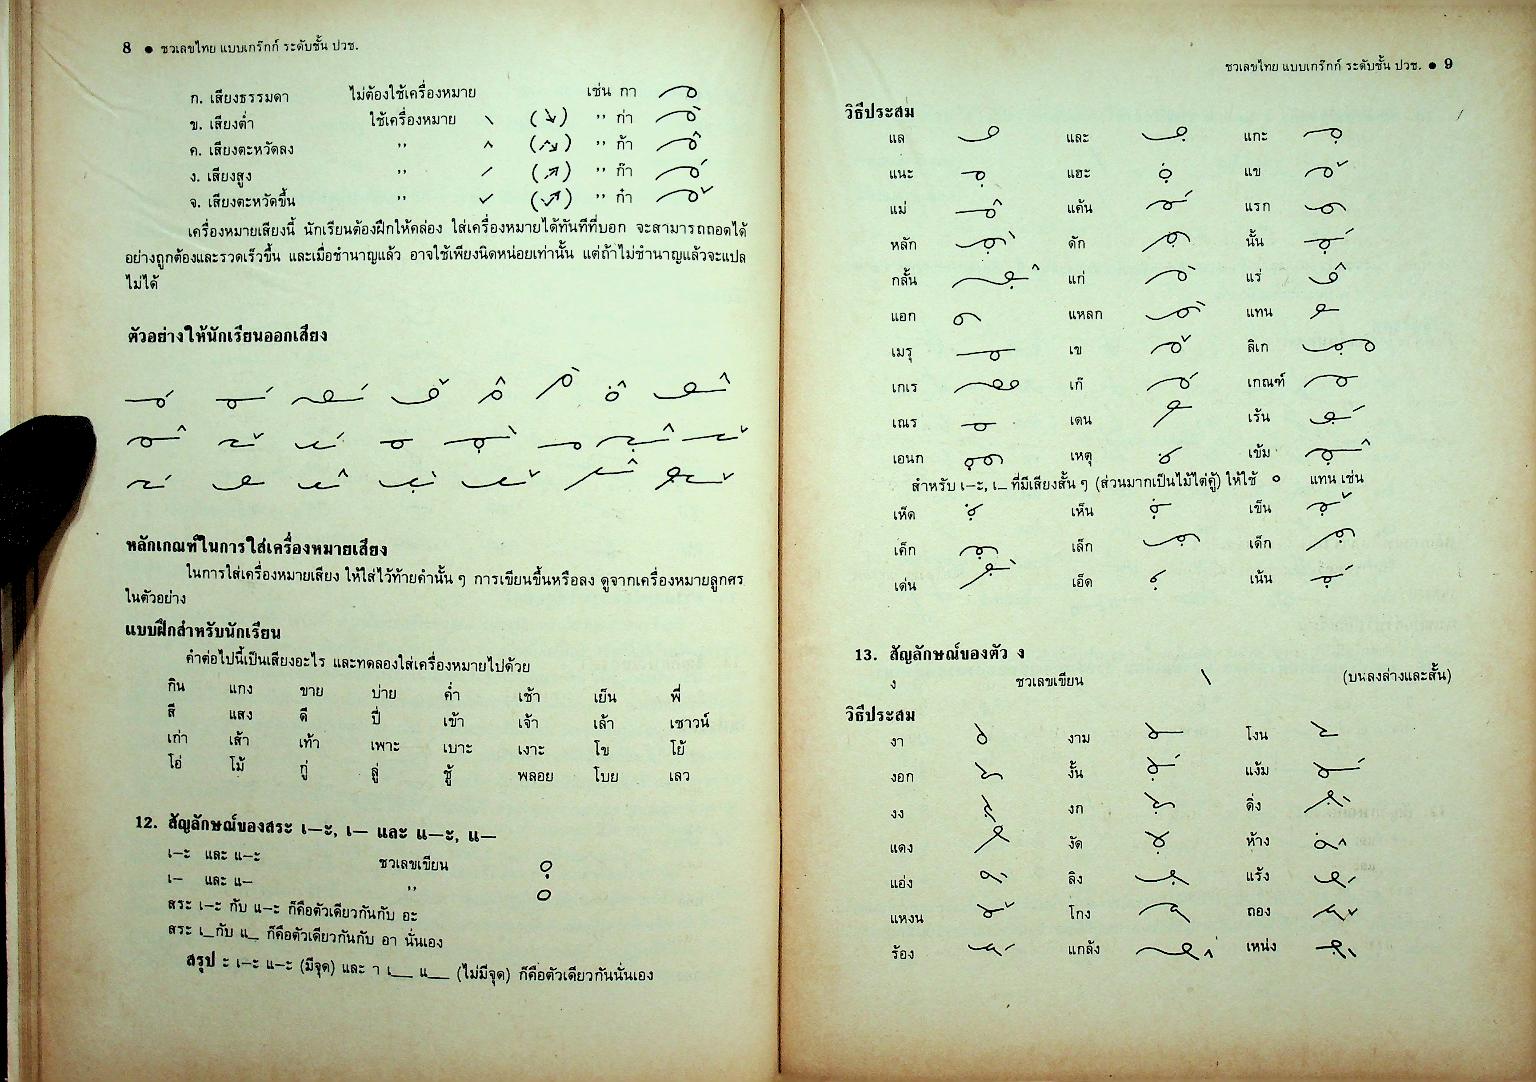 8 ● ชวเลขไทย แบบเกร๊กก์ ระดับชั้น ปวช.
ก. เสียงธรรมดา ไม่ต้องใช้เครื่องหมาย เช่น กา
ข. เสียงต่ำ ใช้เครื่องหมาย \ ( ) ,, ก่า
ค. เสียงตะหวัดลง ,, ^ ( ) ,, ก้า
ง. เสียงสูง ,, / ( ) ,, ก๊า
จ. เสียงตะหวัดขึ้น ,, ✓ ( ) ,, ก๋า
เครื่องหมายเสียงนี้ นักเรียนต้องฝึกให้คล่อง ใส่เครื่องหมายได้ทันทีที่บอก จะสามารถถอดได้
อย่างถูกต้องและรวดเร็วขึ้น และเมื่อชำนาญแล้ว อาจใช้เพียงนิดหน่อยเท่านั้น แต่ถ้าไม่ชำนาญแล้วจะแปล
ไม่ได้
ตัวอย่างให้นักเรียนออกเสียง
หลักเกณฑ์ในการใส่เครื่องหมายเสียง
ในการใส่เครื่องหมายเสียง ให้ใส่ไว้ท้ายคำนั้น ๆ การเขียนขึ้นหรือลง ดูจากเครื่องหมายลูกศร
ในตัวอย่าง
แบบฝึกสำหรับนักเรียน
คำต่อไปนี้เป็นเสียงอะไร และทดลองใส่เครื่องหมายไปด้วย
กิน แกง ขาย บ่าย ค่ำ เช้า เย็น พี่
สี แสง ดี ปี่ เข้า เจ้า เล้า เชาวน์
เก่า เส้า เท้า เพาะ เบาะ เงาะ โข โย้
โอ่ โม้ กู่ ลู่ ชู้ พลอย โบย เลว
12. สัญลักษณ์ของสระ เ–ะ, เ– และ แ–ะ, แ–
เ–ะ และ แ–ะ ชวเลขเขียน
เ– และ แ– ,,
สระ เ–ะ กับ แ–ะ ก็คือตัวเดียวกันกับ อะ
สระ เ_กับ แ_ ก็คือตัวเดียวกันกับ อา นั่นเอง
สรุป ะ เ–ะ แ–ะ (มีจุด) และ า เ__ แ__ (ไม่มีจุด) ก็คือตัวเดียวกันนั่นเอง
ชวเลขไทย แบบเกร๊กก์ ระดับชั้น ปวช. ● 9
วิธีประสม
แล และ แกะ
แนะ แฮะ แข
แม่ แค้น แรก
หลัก ดัก นั้น
กลั้น แก่ แร่
แอก แหลก แทน
เมรุ เข ลิเก
เกเร เก๊ เกณฑ์
เณร เดน เร้น
เอนก เหตุ เข้ม
สำหรับ เ–ะ, เ_ ที่มีเสียงสั้น ๆ (ส่วนมากเป็นไม้ไต่คู้) ให้ใช้ ० แทน เช่น
เห็ด เห็น เข็น
เค็ก เล็ก เด็ก
เด่น เอ็ด เน้น
13. สัญลักษณ์ของตัว ง
ง ชวเลขเขียน \ (บนลงล่างและสั้น)
วิธีประสม
งา งาม โงน
งอก งั้น แง้ม
งง งก ดิ่ง
แดง งัด ห้าง
แอ่ง ลิง แร้ง
แหงน โกง ถอง
ร้อง แกล้ง เหน่ง